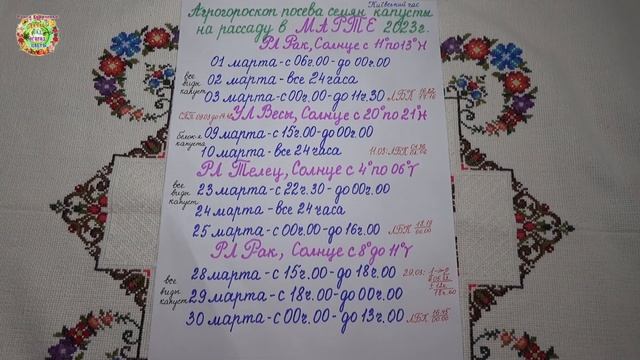 Киевский час
Агрогороскоп посева семян капусты
на рассаду в МАРТЕ 2023г.
РЛ Рак, Солнце с 11° по 13° ♓
01 марта - с 06г.00 - до 00г.00
все виды капуст
02 марта - все 24 часа
03 марта - с 00г.00 - до 11г.30 ЛБК
УЛ Весы, Солнце с 20° по 21° ♓
09 марта - с 15г.00 - до 00г.00
капуста
10 марта - все 24 часа 11.03: ЛБК
РЛ Телец, Солнце с 4° по 06° ♈
23 марта - с 22г.30 - до 00г.00
все виды капуст
24 марта - все 24 часа
25 марта - с 00г.00 - до 16г.00 ЛБК
РЛ Рак, Солнце с 8° до 11° ♈
28 марта - с 15г.00 - до 18г.00 29.03:
все виды капуст
29 марта - с 18г.00 - до 00г.00
30 марта - с 00г.00 - до 13г.00 ЛБК